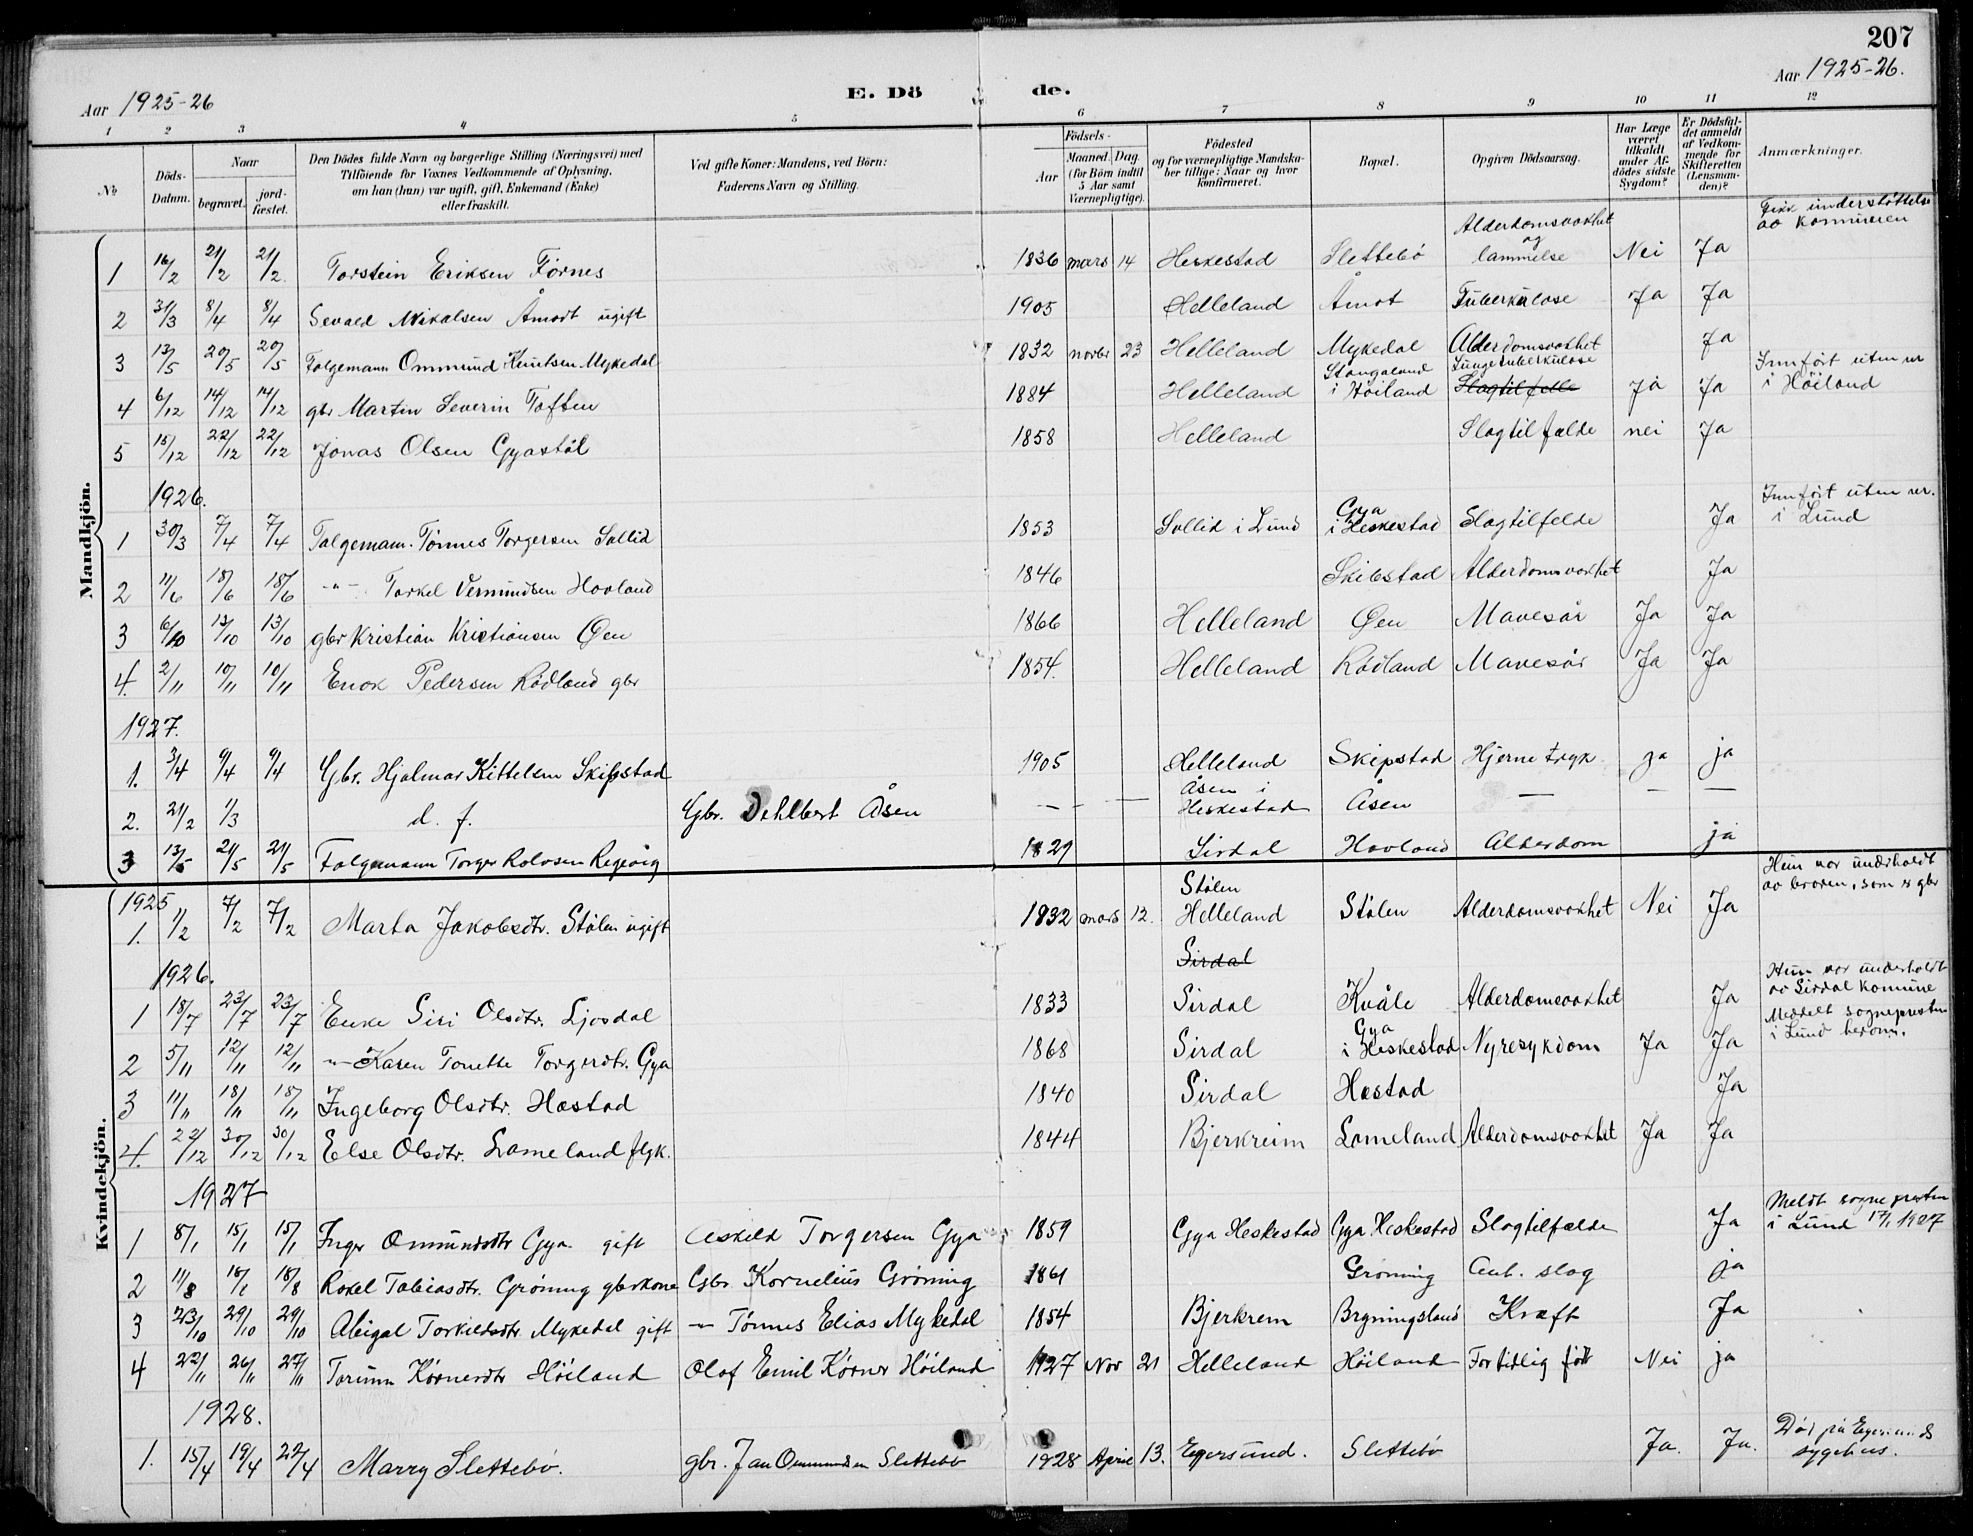 207
Aar 1925-26
E. Dö de.
Aar 1925-26.
1 2 3 4 5 6 7 8 9 10 11 12
No
Döds-Datum.
Naar begravet. jordfæstet.
Den Dödes fulde Navn og borgerlige Stilling (Næringsvei) med Tilföiende for Voxnes Vedkommende af Oplysning, om han (hun) var ugift, gift, Enkemand (Enke) eller fraskilt.
Ved gifte Koner: Mandens, ved Börn: Faderens Navn og Stilling.
Födsels- Aar Maaned. Dag. (for Börn indtil 5 Aar samt Værnepligtige).
Födested og for værnepligtige Mandskaber tillige: Naar og hvor konfirmeret.
Bopæl.
Opgiven Dödsaarsag.
Har Læge været tilkaldt under Afdödes sidste Sygdom?
Er Dödsfaldet anmeldt af Vedkommende for Skifteretten (Lensmanden)?
Anmærkninger.
Mandkjön.
1 16/2 21/2 21/2 Torstein Eriksen Förnes 1836 mars 14 Heskestad Slettebö Alderdomsvakhet og lammelse Nei Ja Fikk understöttelse av kommunen
2 31/3 8/4 8/4 Sevald Mikalsen Åmodt ugift 1905 Helleland Åmot Tuberkulose Ja Ja
3 13/5 20/5 20/5 Folgemann Ommund Knutsen Mykedal 1832 novbr 23 Helleland Mykedal Alderdomsvakhet Ja
4 6/12 14/12 14/12 gbr Martin Severin Toften 1884 Helleland Stangaland i Höiland Lungetuberkulose Slagtilfelle Ja Ja Innfört uten nr i Höiland
5 15/12 22/12 22/12 Jonas Olsen Gyastöl 1858 Helleland Slagtilfælde nei Ja
1926.
1 30/3 7/4 7/4 Folgemann Tönnes Torgersen Sollid 1853 Sollid i Lund Gya i Heskestad Slagtilfelde Ja Innfört uten nr. i Lund
2 11/6 18/6 18/6 -"- Torkel Vermundsen Hovland 1846 Skibstad Alderdomsvakhet Ja
3 6/10 13/10 13/10 gbr Kristian Kristiansen Øen 1866 Helleland Øen Mavesår Ja Ja
4. 2/11 10/11 10/11 Enok Pedersen Rödland gbr 1854. Helleland Rödland Mavesår Ja Ja
1927.
1. 3/4 9/4 9/4 Gbr. Hjalmar Kittelsen Skipstad 1905 Helleland Skipstad Hjerne tryk ja ja
2. 21/2 1/3 d. f. Gbr. Dehlbert Åsen - - Åsen i Heskestad Åsen - - -
3 13/5 21/5 21/5 Folgemann Torger Rolvsen Regevig 1829 Sirdal Hovland Alderdom ja
Kvindekjön.
1925
1. 1/2 7/2 7/2 Marta Jakobsdtr. Stölen ugift 1832 mars 12. Stölen Helleland Stölen Alderdomsvakhet Nei Ja Hun var underholdt av broren, som er gbr
Sirdal
1926.
1 18/7 23/7 23/7 Enke Siri Olsdtr. Ljosdal 1833 Sirdal Kvåle Alderdomsvakhet Ja Hun var underholdt av Sirdal komune
2 5/11 12/11 12/11 -"- Karen Tonette Torgersdtr. Gya 1868 Sirdal Gya i Heskestad Nyresykdom Ja Ja Meddelt sognepresten i Lund herom.
3 11/11 18/11 18/11 Ingeborg Olsdtr. Hæstad 1840 Sirdal Hæstad Ja
4. 22/12 30/12 30/12 Else Olsdtr. Lomeland flgk. 1844 Bjerkreim Lomeland Alderdomsvakhet Ja Ja
1927
1 8/1 15/1 15/1 Inger Omundsdtr Gya gift Askild Torgersen Gya 1859 Gya Heskestad Gya Heskestad Slagtilfælde Ja Meldt sognepresten i Lund 17/1 1927
2 11/8 18/8 18/8 Rakel Tobiasdtr. Gröning gbrkone Gbr Kornelius Gröning 1861 Gröning Ant. slag ja
3 23/10 29/10 29/10 Abigal Torkildsdtr Mykedal gift -"- Tönnes Elias Mykedal 1854 Bjerkrem Bryningsland Kræft Ja
4 22/11 26/11 27/11 Torunn Körnersdtr Höiland Olaf Emil Körner Höiland 1927 Nov 21 Helleland Höiland For tidlig födt Nei ja
1928.
1. 15/4 19/4 22/4 Marry Slettebö. gbr. Jan Ommundsen Slettebö 1928 April 13. Egersund. Slettebö Ja. Ja. Död på Egersunds sygehus.